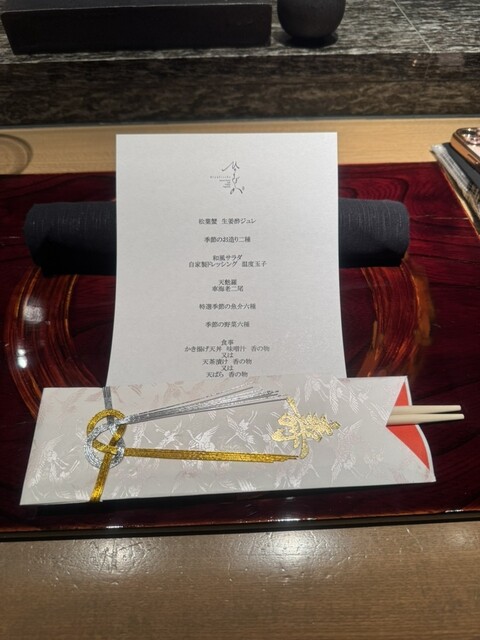 松葉蟹 生姜酢ジュレ
季節のお造り二種
和風サラダ
自家製ドレッシング 温度玉子
天麩羅
車海老二尾
特選季節の魚介六種
季節の野菜六種
食事
かき揚げ天丼 味噌汁 香の物
又は
天茶漬け 香の物
又は
天ばら 香の物